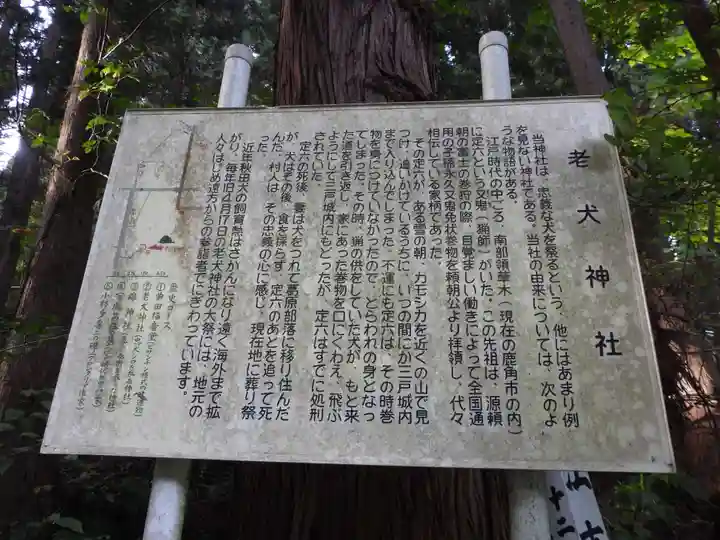 老犬神社
当神社は、忠義な犬を祭るという、他にはあまり例
を見ない神社である。当社の由来については、次のよ
うな物語がある。
江戸時代の中ごろ、南部領草木(現在の鹿角市の内)
に定六という又鬼(猟師)がいた。この先祖は、源頼
朝の富士の巻狩の際、目覚ましい働きによって全国通
用の子孫永久又鬼免状巻物を頼朝公より拝領し、代々
相伝している家柄であった。
その定六が、ある雪の朝、カモシカを近くの山で見
つけ、追いかけているうちに、いつの間にか三戸城内
まで入り込んでしまった。不運にも定六は、その時巻
物を身につけていなかったので、とらわれの身となっ
てしまった。その時、猟の供をしていた犬が、もと来
た道を引き返し、家にあった巻物を口にくわえ、飛ぶ
ようにして三戸城内にもどったが、定六はすでに処刑
されていた。
定六の死後、妻は犬をつれて葛原部落に移り住んだ
が、犬はその後、食を採らず、定六のあとを追って死
んだ。村人は、その忠義の心に感じ、現在地に葬り祭
った。
近年秋田犬の飼育熱はさかんになり遠く海外まで拡
がり、毎年旧4月17日の老犬神社の大祭には、地元の
人々はじめ遠方からの参詣者でにぎわっています。
歴史コース
②老犬神社